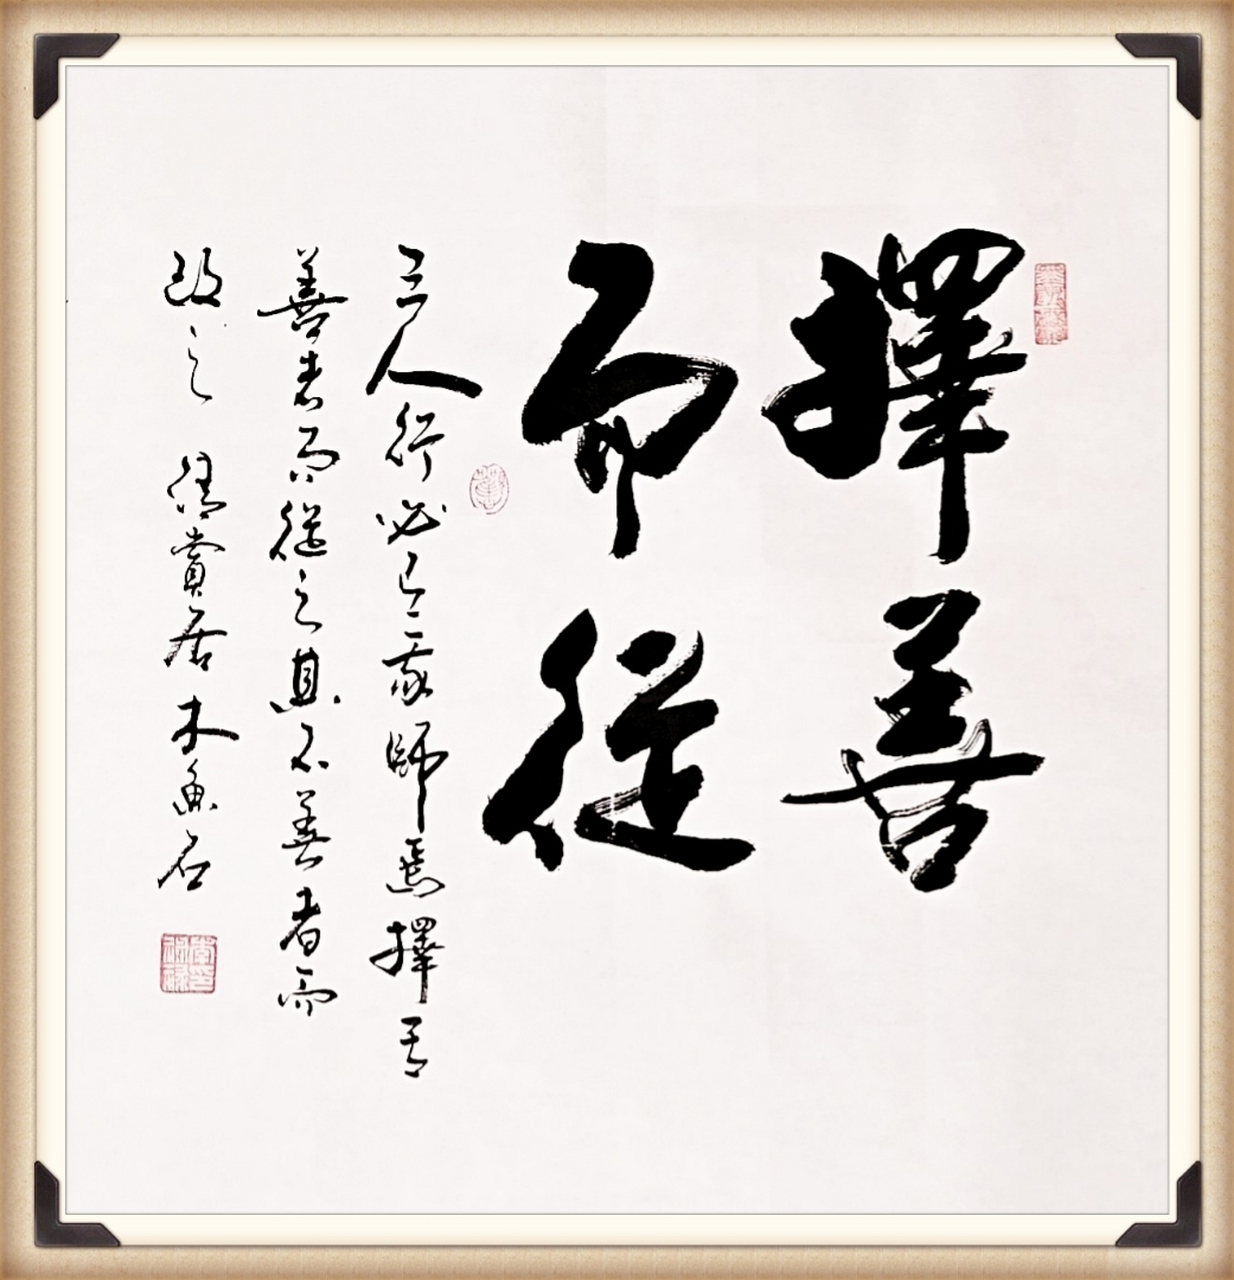 擇善
而從
三人行必有我師焉擇其
善者而從之其不善者而
改之 清賞居木魚石